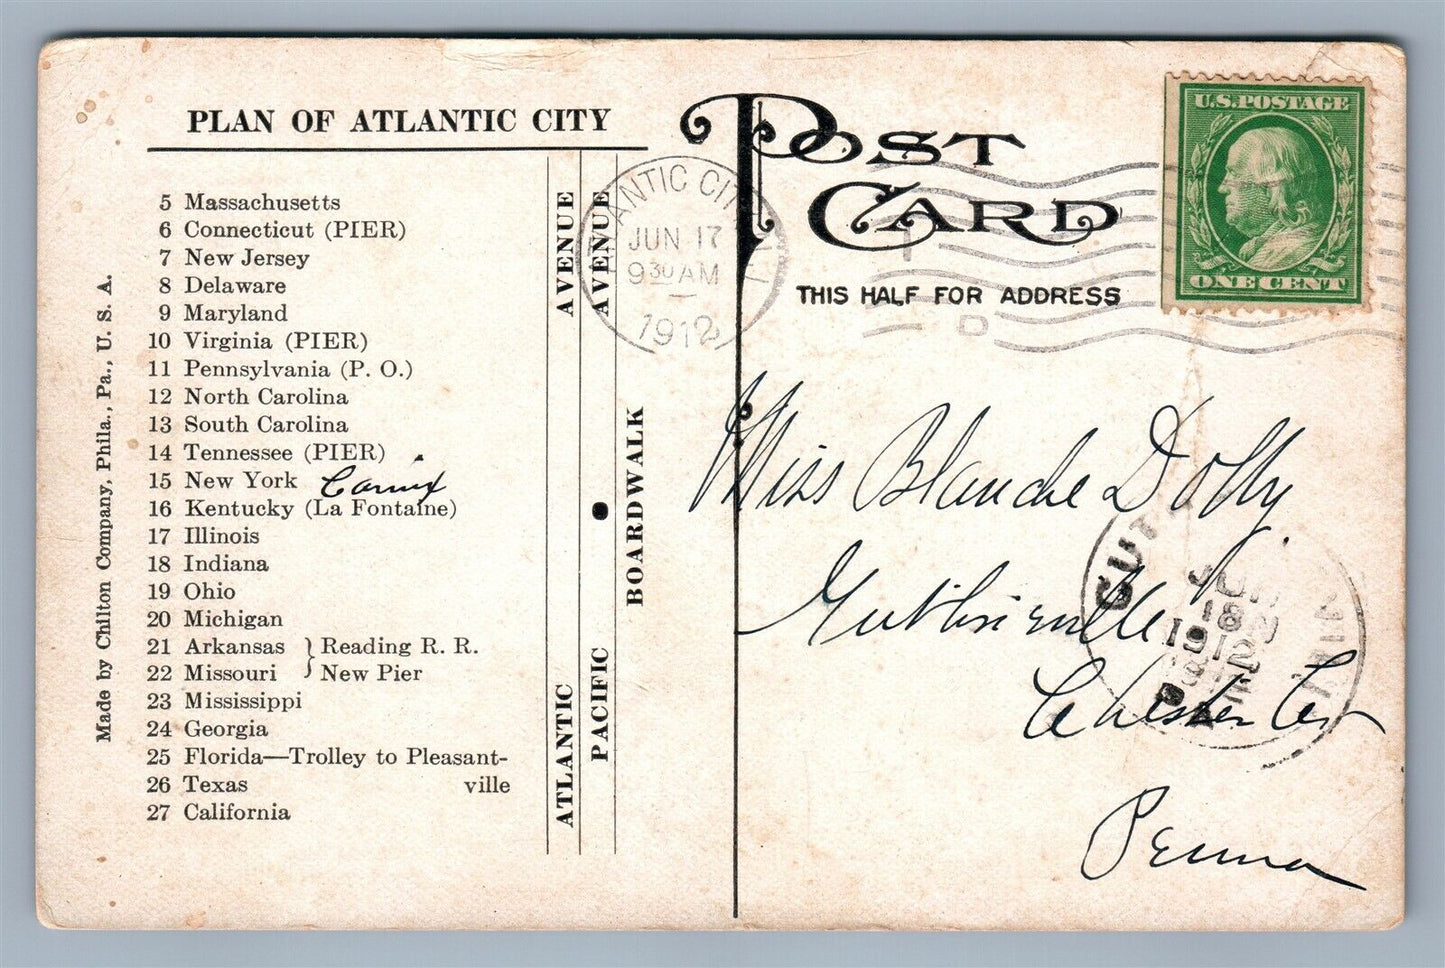 PLAN OF ATLANTIC CITY
5 Massachusetts
6 Connecticut (PIER)
7 New Jersey
8 Delaware
9 Maryland
10 Virginia (PIER)
11 Pennsylvania (P. O.)
12 North Carolina
13 South Carolina
14 Tennessee (PIER)
15 New York
16 Kentucky (La Fontaine)
17 Illinois
18 Indiana
19 Ohio
20 Michigan
21 Arkansas } Reading R. R.
22 Missouri } New Pier
23 Mississippi
24 Georgia
25 Florida—Trolley to Pleasant-
26 Texas ville
27 California
Made by Chilton Company, Phila., Pa., U. S. A.
ATLANTIC AVENUE
PACIFIC AVENUE
BOARDWALK
ATLANTIC CITY
JUN 17
9 30 AM
1912
POST
CARD
THIS HALF FOR ADDRESS
U.S. POSTAGE
ONE CENT
Miss Blanche Dolby
Guthrieville
Chester Co
Penna
JUN
18
1912